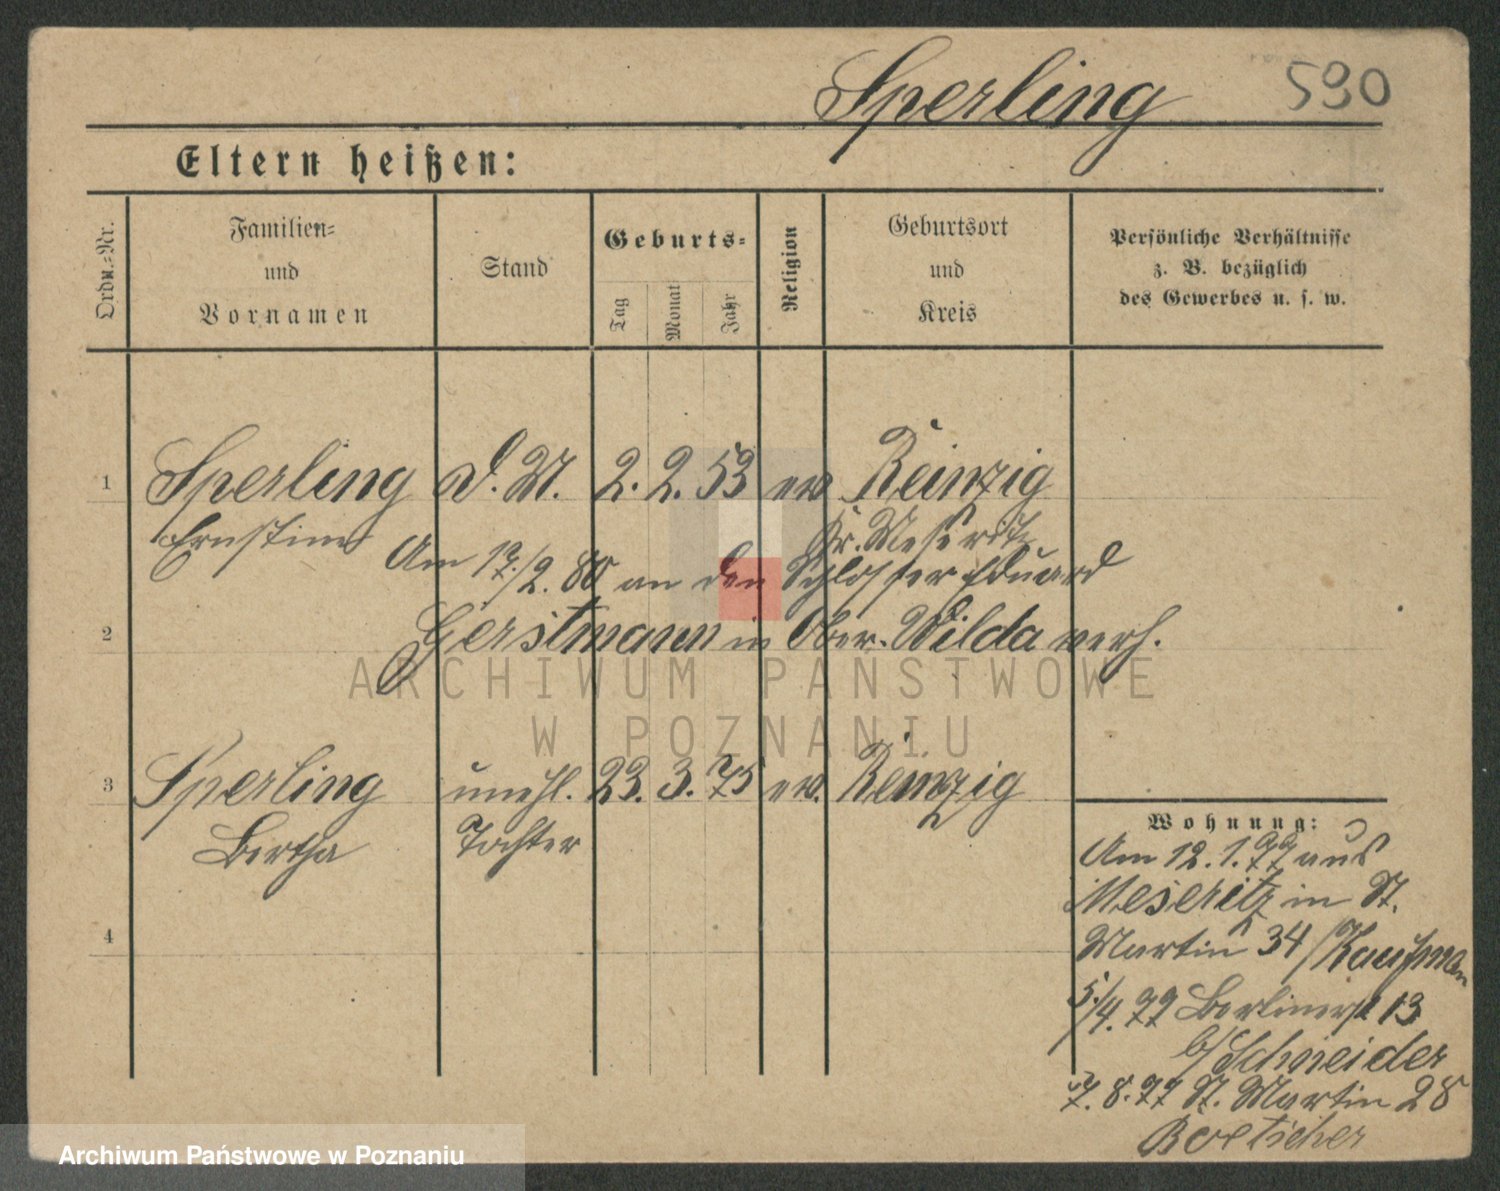 Sperling 590
Eltern heißen:
Ordn.-Nr.
Familien-
und
Vornamen
Stand
Geburts-
Tag
Monat
Jahr
Religion
Geburtsort
und
Kreis
Persönliche Verhältnisse
z. B. bezüglich
des Gewerbes u. s. w.
1 Sperling D. M. 2. 2. 53 ev Reinzig
Ernstine Kr. Meseritz
Am 17/2. 80 an den Schlosser Eduard
2 Gerstmann in Ober-Wilda verh.
3 Sperling unehl. 23. 3. 75 ev. Reinzig
Bertha Tochter
4
Wohnung:
Am 12. 1. 77 aus
Meseritz in St.
Martin 34 / Kaufman
5/4. 77 Berlinerst 13
b/ Schneider
7. 8. 77 St. Martin 28
Boetscher
ARCHIWUM PAŃSTWOWE
W POZNANIU
Archiwum Państwowe w Poznaniu